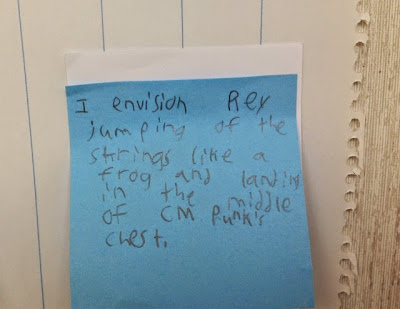 I envision Rey
jumping of the
strings like a
frog and landing
in the middle
of CM Punk's
chest.